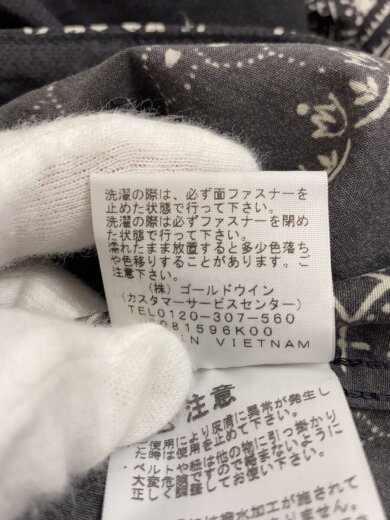 洗濯の際は、必ず面ファスナーを
止めた状態で行って下さい。
洗濯の際は必ずファスナーを閉め
た状態で行って下さい。
濡れたまま放置すると多少色落ち
や色移りすることがあります。ご
注意下さい。
(株) ゴールドウイン
(カスタマーサービスセンター)
TEL0120-307-560
081596K00
IN VIETNAM
注意
ご使用により皮膚に異常が発生し
た時は使用を止めて下さい。
ベルトや紐は他の物に引っ掛かり
大変危険ですので絡まないように
正しく調整してお使い下さい。
は撥水加工が施されて